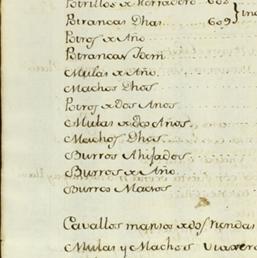 Potrillos de Herradero 602
Potrancas Dhas 609 } inc
Potros de Año
Potrancas Idem
Mulas de Año
Machos Dhos
Potros de Dos Años
Mulas de dos Años
Machos Dhos
Burros Ahijados
Burros de Año
Burros Maeros
Cavallos mansos de dos riendas
Mulas y Machos